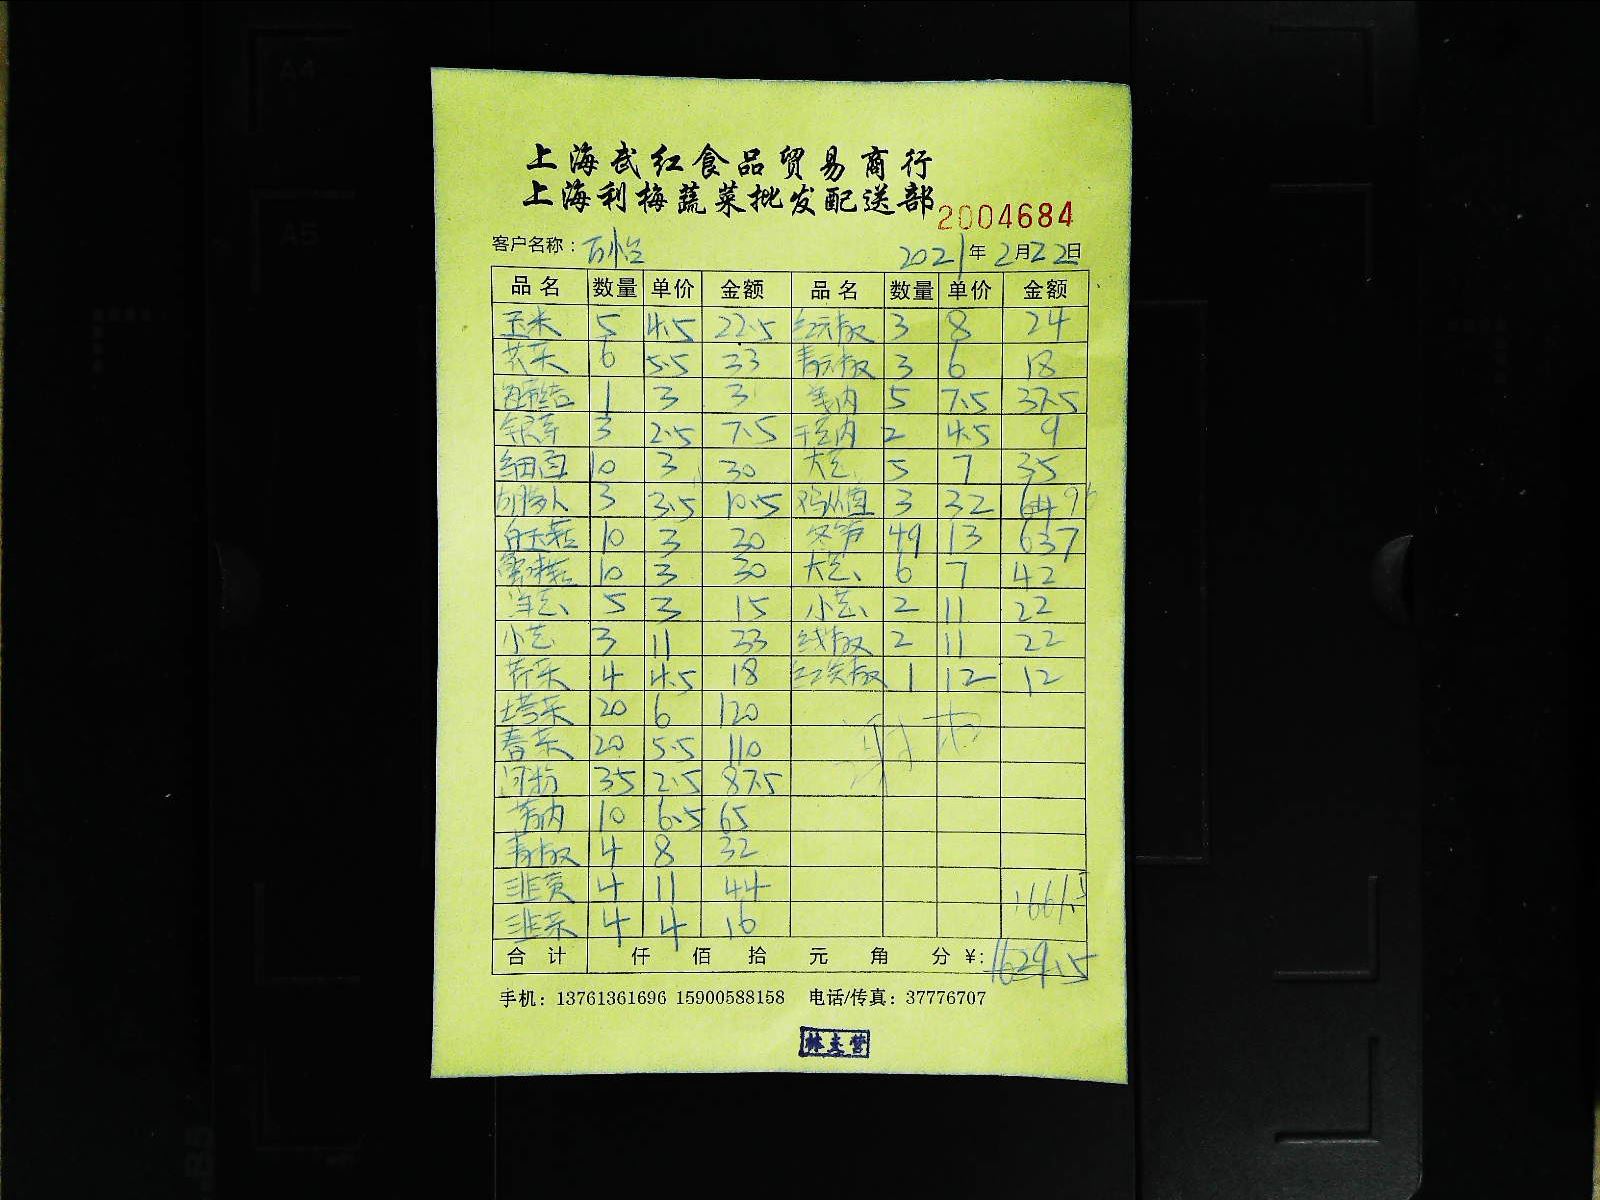 A4
A5
B5
上海武红食品贸易商行
上海利梅蔬菜批发配送部
2004684
客户名称： 2021年2月22日
品名 数量 单价 金额 品名 数量 单价 金额
玉米 5 4.5 22.5 红元椒 3 8 24
芥菜 6 5.5 33 青元椒 3 6 18
海带结 1 3 3 姜肉 5 7.5 37.5
银芽 3 2.5 7.5 干豆肉 2 4.5 9
10 3 30 大芒 5 7 35
3 3.5 10.5 3 32 64 96
白玉菇 10 3 30 冬笋 49 13 637
10 3 30 大芒 6 7 42
洋芒 5 3 15 小芒 2 11 22
小芒 3 11 33 线椒 2 11 22
芹菜 4 4.5 18 红尖椒 1 12 12
塔菜 20 6 120
春菜 20 5.5 110
河粉 35 2.5 87.5
10 6.5 65
青椒 4 8 32
韭黄 4 11 44
韭菜 4 4 16
1661.5
合计 仟 佰 拾 元 角 分 ¥: 1629.5
手机：13761361696 15900588158 电话/传真：37776707